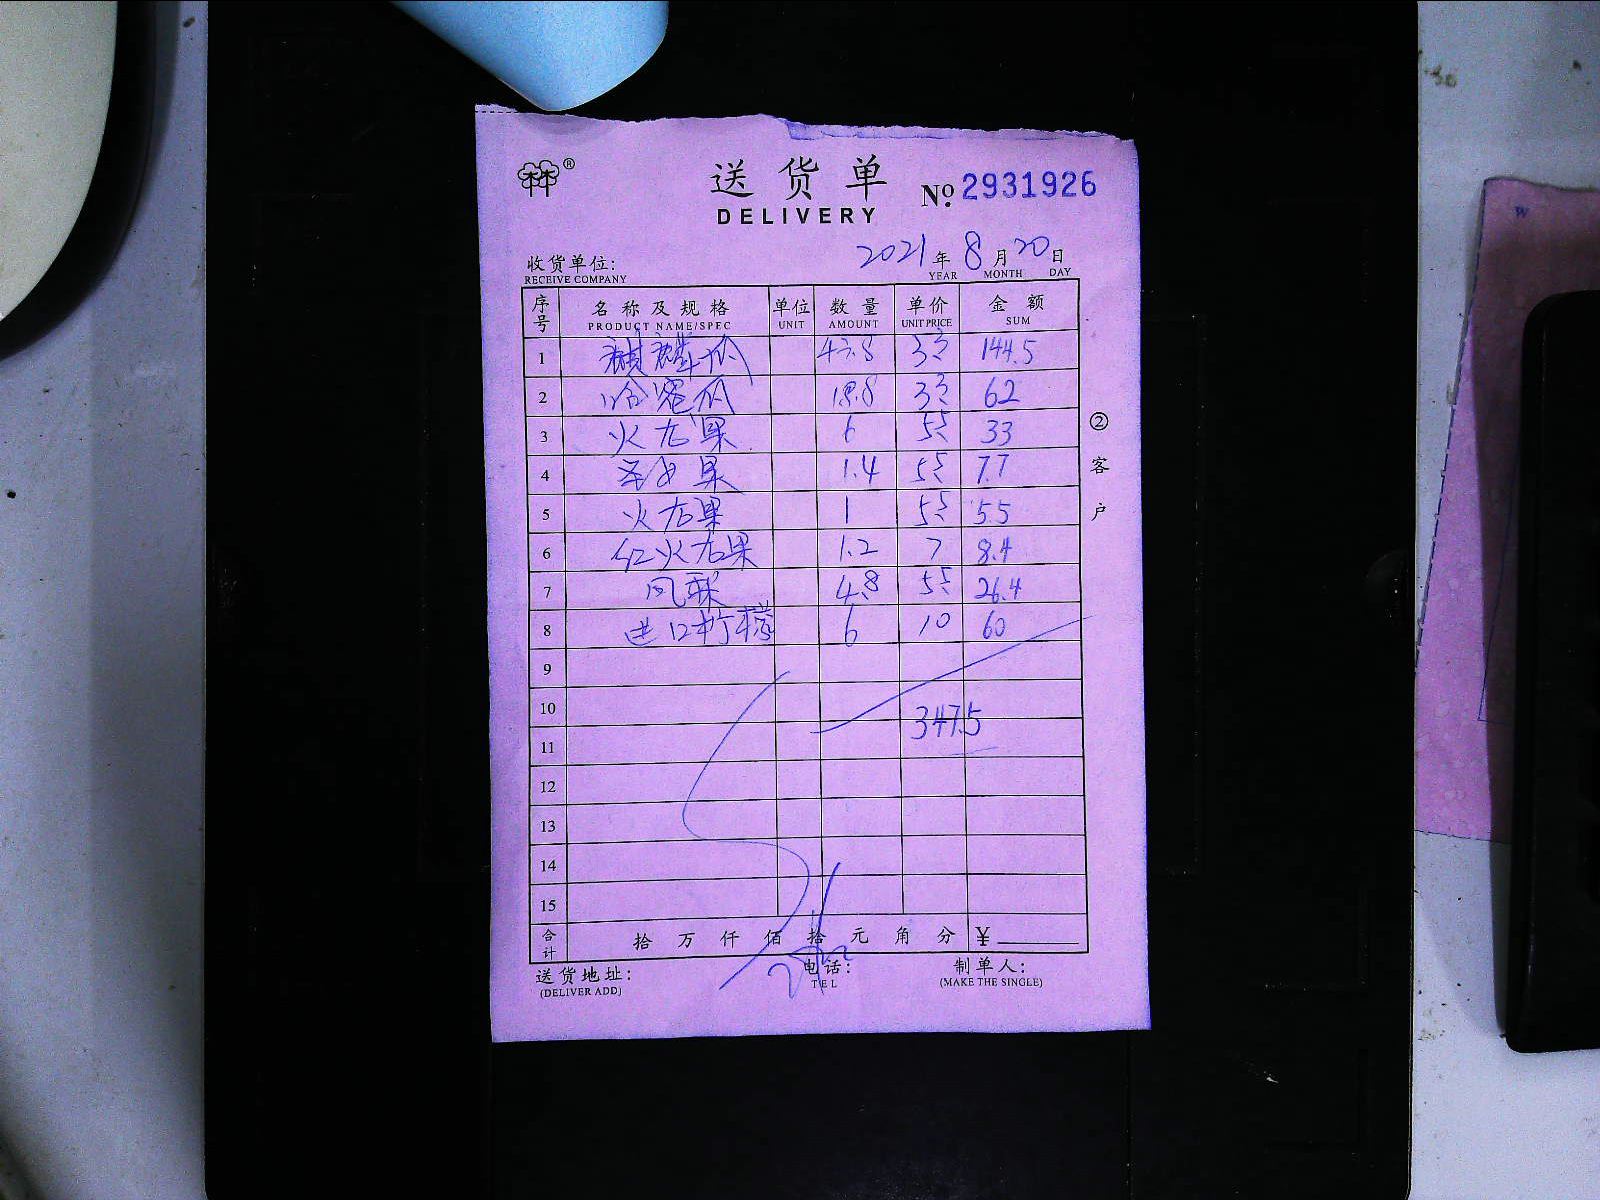 林林®
送货单
DELIVERY
No. 2931926
收货单位:
RECEIVE COMPANY
2021年8月20日
YEAR MONTH DAY
序号 名称及规格 单位 数量 单价 金额
PRODUCT NAME/SPEC UNIT AMOUNT UNIT PRICE SUM
1 麒麟瓜 43.8 3.3 144.5
2 哈密瓜 18.8 3.3 62
3 火龙果 6 5.5 33
4 圣女果 1.4 5.5 7.7
5 火龙果 1 5.5 5.5
6 红火龙果 1.2 7 8.4
7 凤梨 4.8 5.5 26.4
8 进口柠檬 6 10 60
9
10
347.5
11
12
13
14
15
合计 拾万仟佰拾元角分 ¥
送货地址: 电话: 制单人:
(DELIVER ADD) TEL (MAKE THE SINGLE)
②客户
W